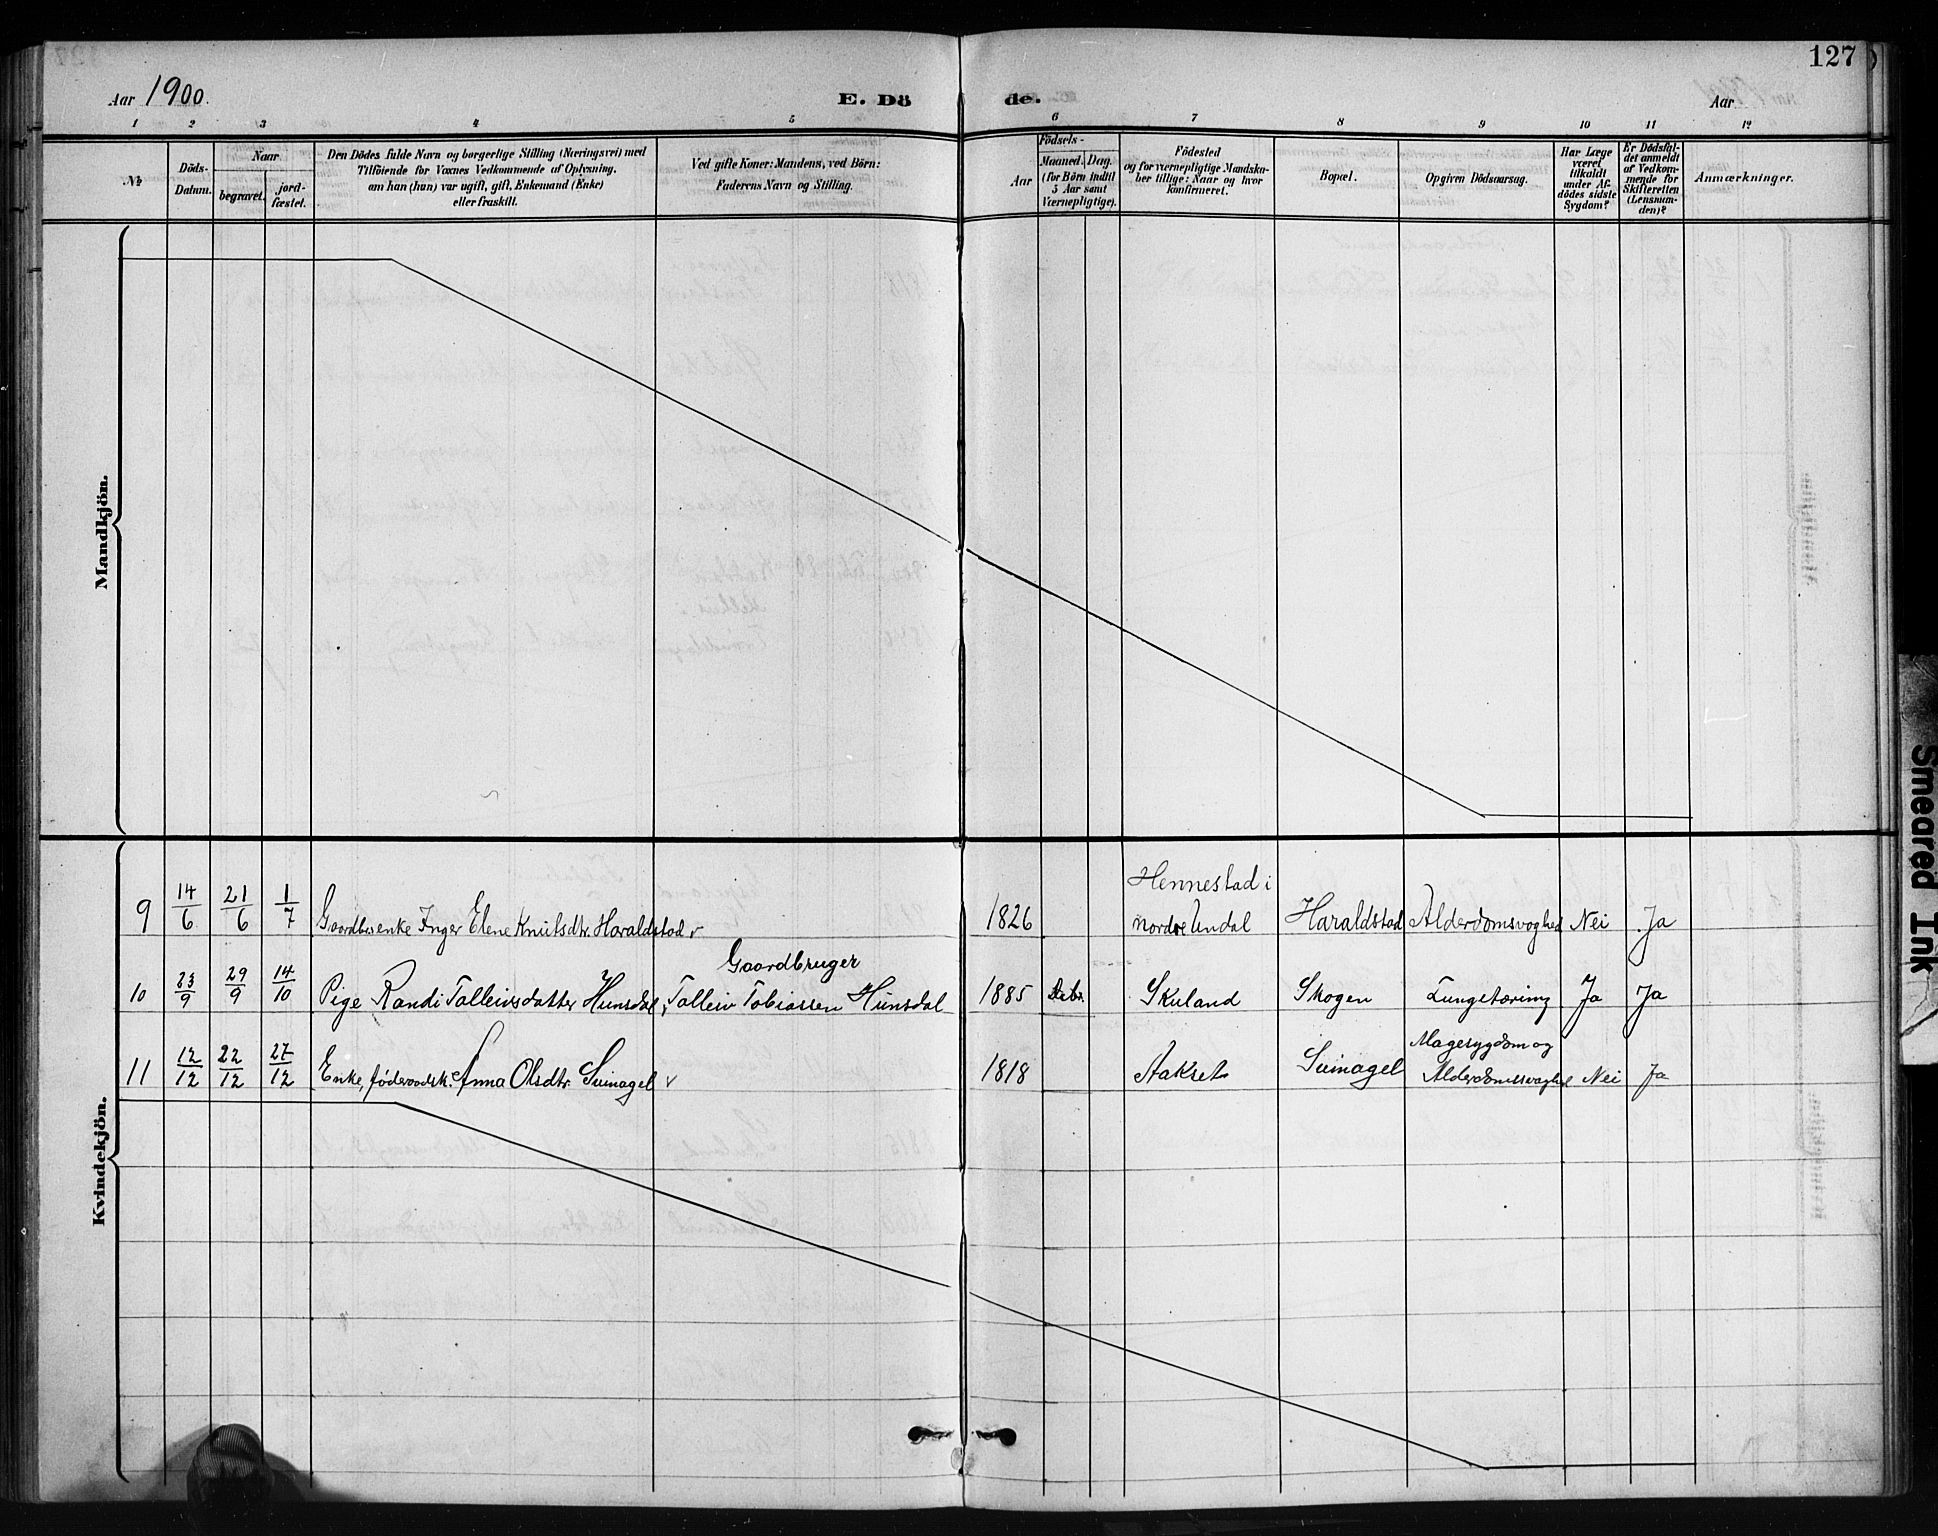 127
Aar 1900.
E. Dö de.
Aar
1 2 3 4 5 6 7 8 9 10 11 12
№
Döds-Datum.
Naar
begravet.
jord-fæstet.
Den Dödes fulde Navn og borgerlige Stilling (Næringsvei) med
Tilföiende for Voxnes Vedkommende af Oplysning,
om han (hun) var ugift, gift, Enkemand (Enke)
eller fraskilt.
Ved gifte Koner: Mandens, ved Börn:
Faderens Navn og Stilling.
Födsels-
Aar
Maaned. Dag.
(for Börn indtil
5 Aar samt
Værnepligtige).
Födested
og for værnepligtige Mandska-
ber tillige: Naar og hvor
konfirmeret.
Bopæl.
Opgiven Dödsaarsag.
Har Læge
været
tilkaldt
under Af-
dödes sidste
Sygdom?
Er Dödsfal-
det anmeldt
af Vedkom-
mende for
Skifteretten
(Lensman-
den)?
Anmærkninger.
Mandkjön.
Kvindekjön.
9 14/6 21/6 1/7 Gaardbrenke Inger Elene Knutsdtr. Haraldstad 1826 Hennestad i
nordre Undal Haraldstad Alderdomsvaghed Nei Ja
10 23/9 29/9 14/10 Pige Randi Talleivsdatter Hunsdal, Gaardbruger
Talleiv Tobiassen Hunsdal 1885 Skuland Skogen Lungetæring Ja Ja
11 12/12 22/12 27/12 Enke, föderaadsk. Anna Olsdtr. Svinagel 1818 Aakset Svinagel Mavesygdom og
Alderdomssvaghed Nei Ja
Smeared Ink